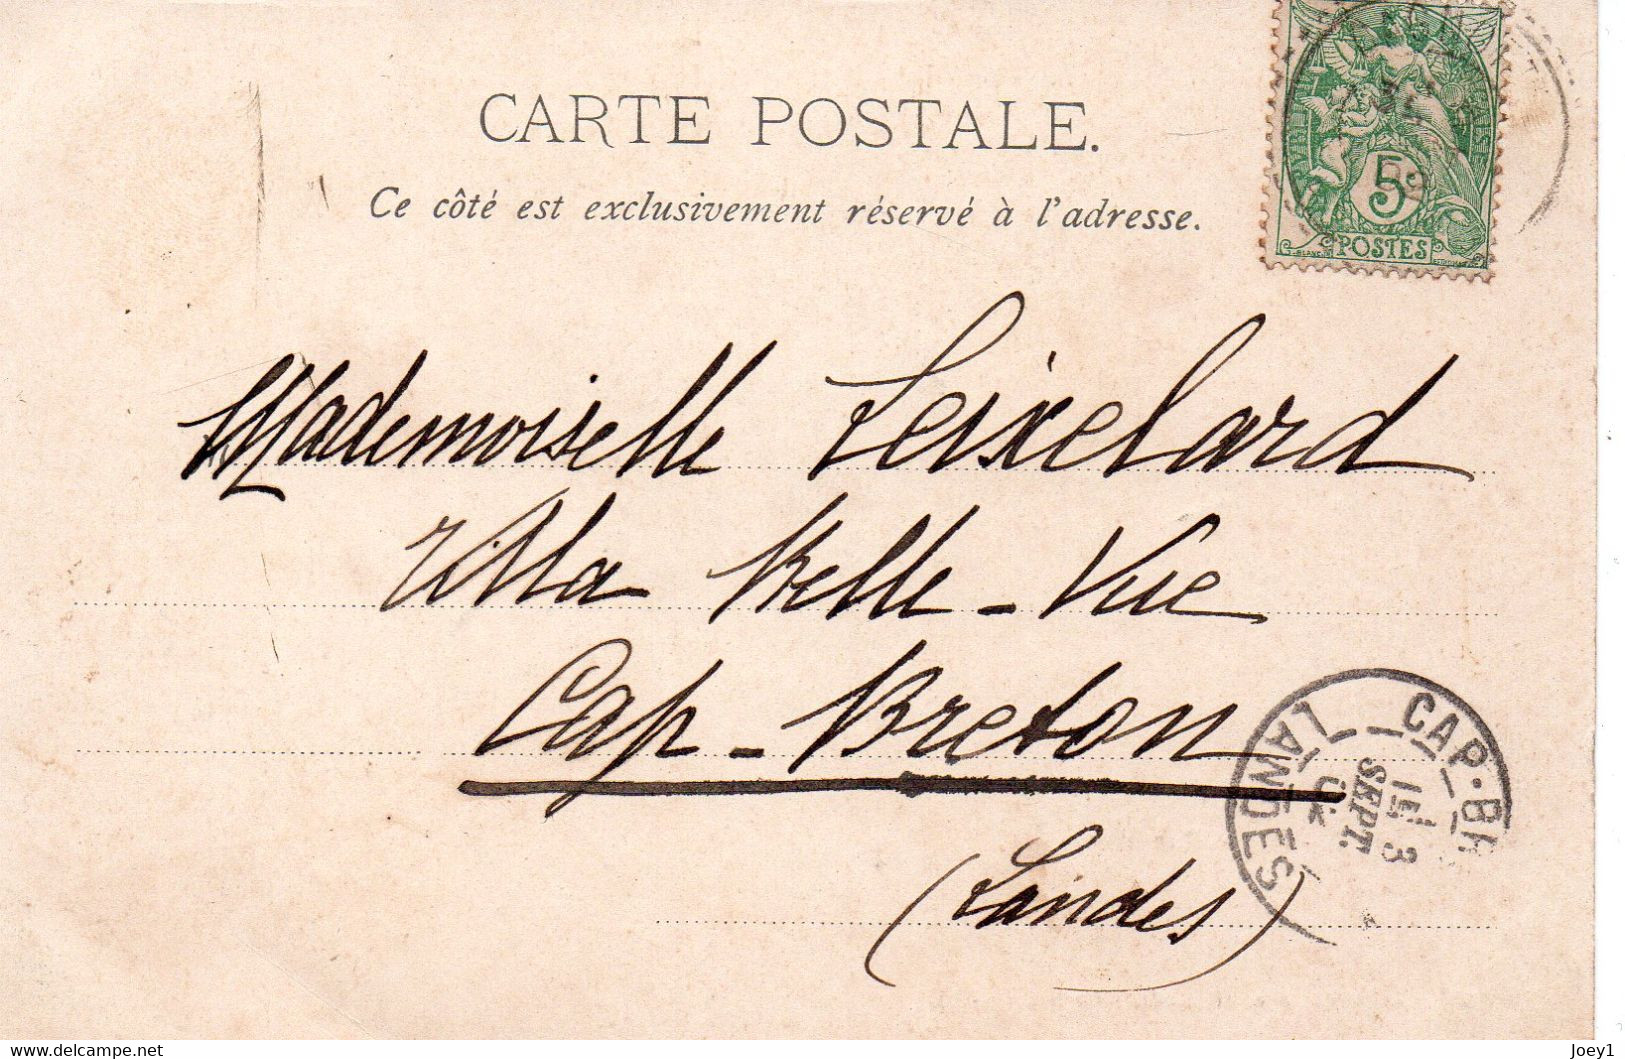 CARTE POSTALE.
Ce côté est exclusivement réservé à l'adresse.
5c
POSTES
Mademoiselle Leixelard
Villa Belle-Vue
Cap-Breton
(Landes)
CAP-BR
LANDES
SEPT.
delcampe.net
Joey1